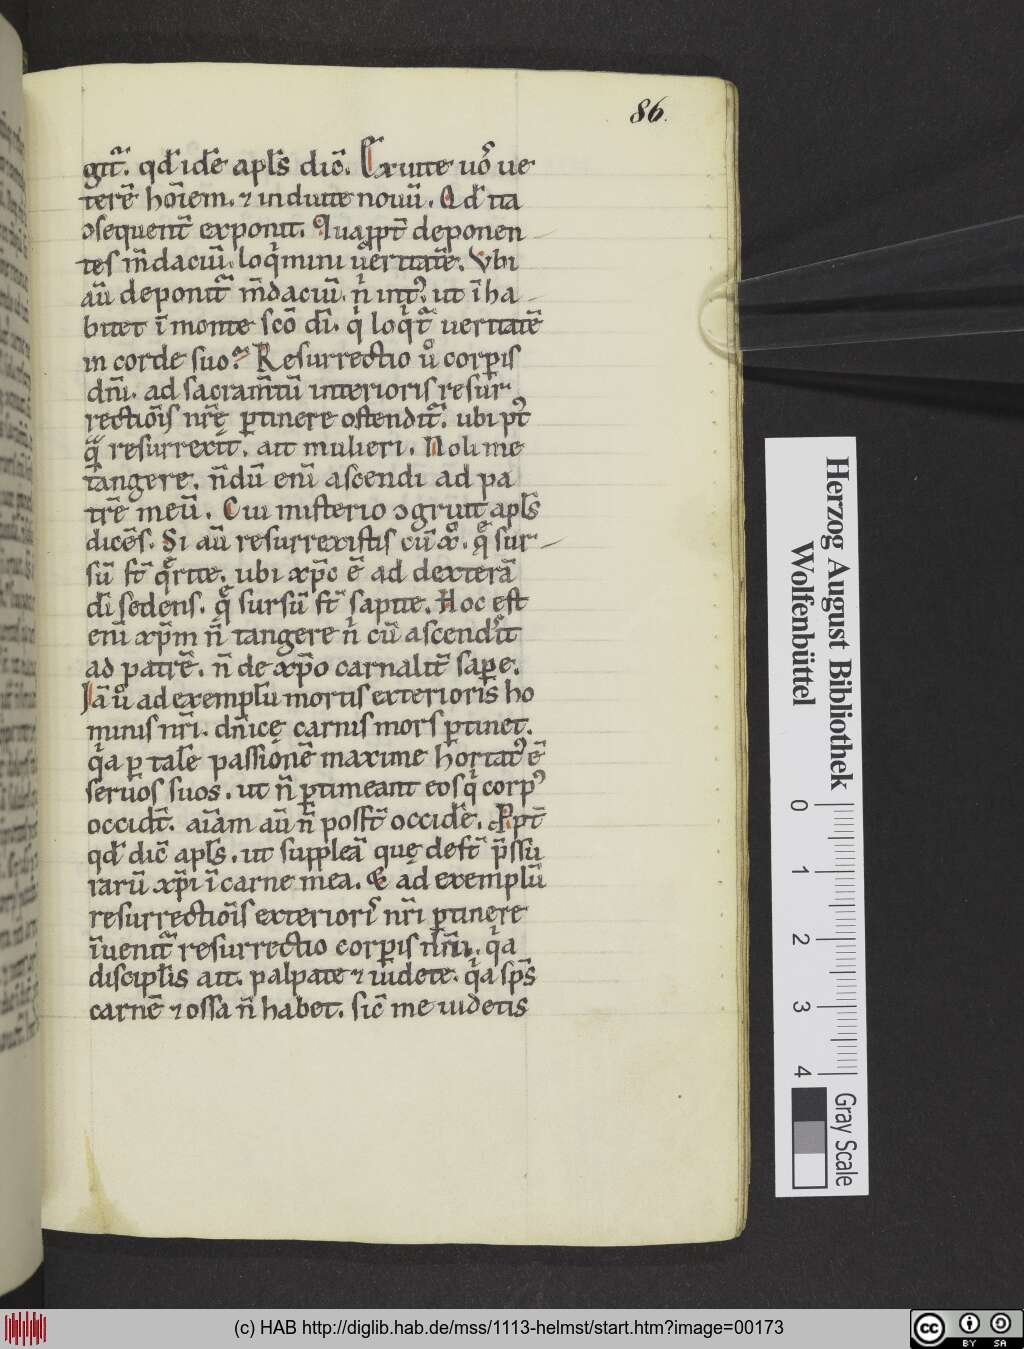 86.
git᷑. qđ idē apl̄s dic̄. Exuite uō ue
terē hoīem. ⁊ induite nouū. Qđ ita
ꝯsequent̄ exponit. Quaꝓpt̄ deponen
tes m̄daciū. loq̄mini ueritatē. Vbi
aū deponit᷑ m̄daciū. n̄ int᷒. ut ī ha
bitet ī monte sc̄o dī. q̇ loq̇t᷑ ueritatē
in corde suo? Resurrectio u̇ corꝑis
dn̄i. ad sacram̄tū interioris resur
rectiōis nr̄ę ꝑtinere ostendit᷑. ubi pt̄
qᷓ resurrexit. ait mulieri. Noli me
tangere. n̄dū enī ascendi ad pa
trē meū. Cui misterio ꝯgruit apl̄s
dicēs. Si aū resurrexistis cū x̊. quę sur
sū st̄ qrite. ubi xp̄c ē ad dexterā
dī sedens. quę sursū st̄ sapite. Hoc est
enī xp̄m n̄ tangere n̄ cū ascendit
ad patrē. n̄ de xp̄o carnalit̄ saꝑe.
Iā u̇ ad exemplū mortis exterioris ho
minis nr̄i. dn̄icę carnis mors ꝑtinet.
q̇a ꝑ talē passionē maxime hortat᷒ ē
seruos suos. ut n̄ ꝑtimeant eos q̇ corp᷒
occidt̄. aīam aū n̄ posst̄ occidē. Ꝓpt̄
qđ dic̄ apl̄s. ut suppleā quę dest̄ p̄ssu
rarū xp̄i ī carne mea. & ad exemplū
resurrectiōis exterioris nr̄i ꝑtinere
īuenit᷑ resurrectio corꝑis dn̄i. q̇a
disciplīs ait. palpate ⁊ uidete. q̇a sp̄s
carnē ⁊ ossa n̄ habet. sic̄ me uidetis
Herzog August Bibliothek
Wolfenbüttel
0 1 2 3 4
Gray Scale
(c) HAB http://diglib.hab.de/mss/1113-helmst/start.htm?image=00173
cc BY SA